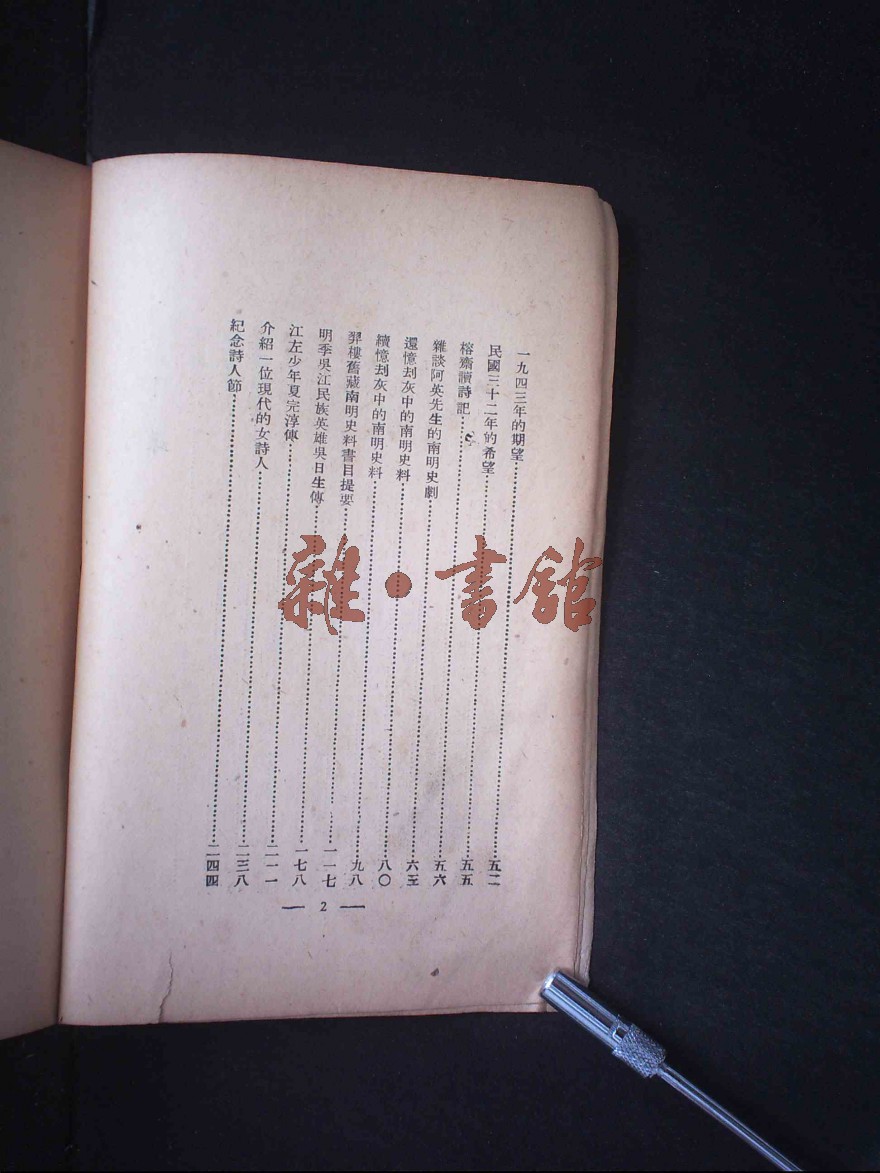 一九四三年的期望……五二
民國三十二年的希望……五五
榕齋讀詩記……五六
雜談阿英先生的南明史劇……六五
還憶刦灰中的南明史料……八〇
續憶刦灰中的南明史料……九八
羿樓舊藏南明史料書目提要……一一七
明季吳江民族英雄吳日生傳……一七八
江左少年夏完淳傳……二一一
介紹一位現代的女詩人……二三八
紀念詩人節……二四四
— 2 —
雜·書館